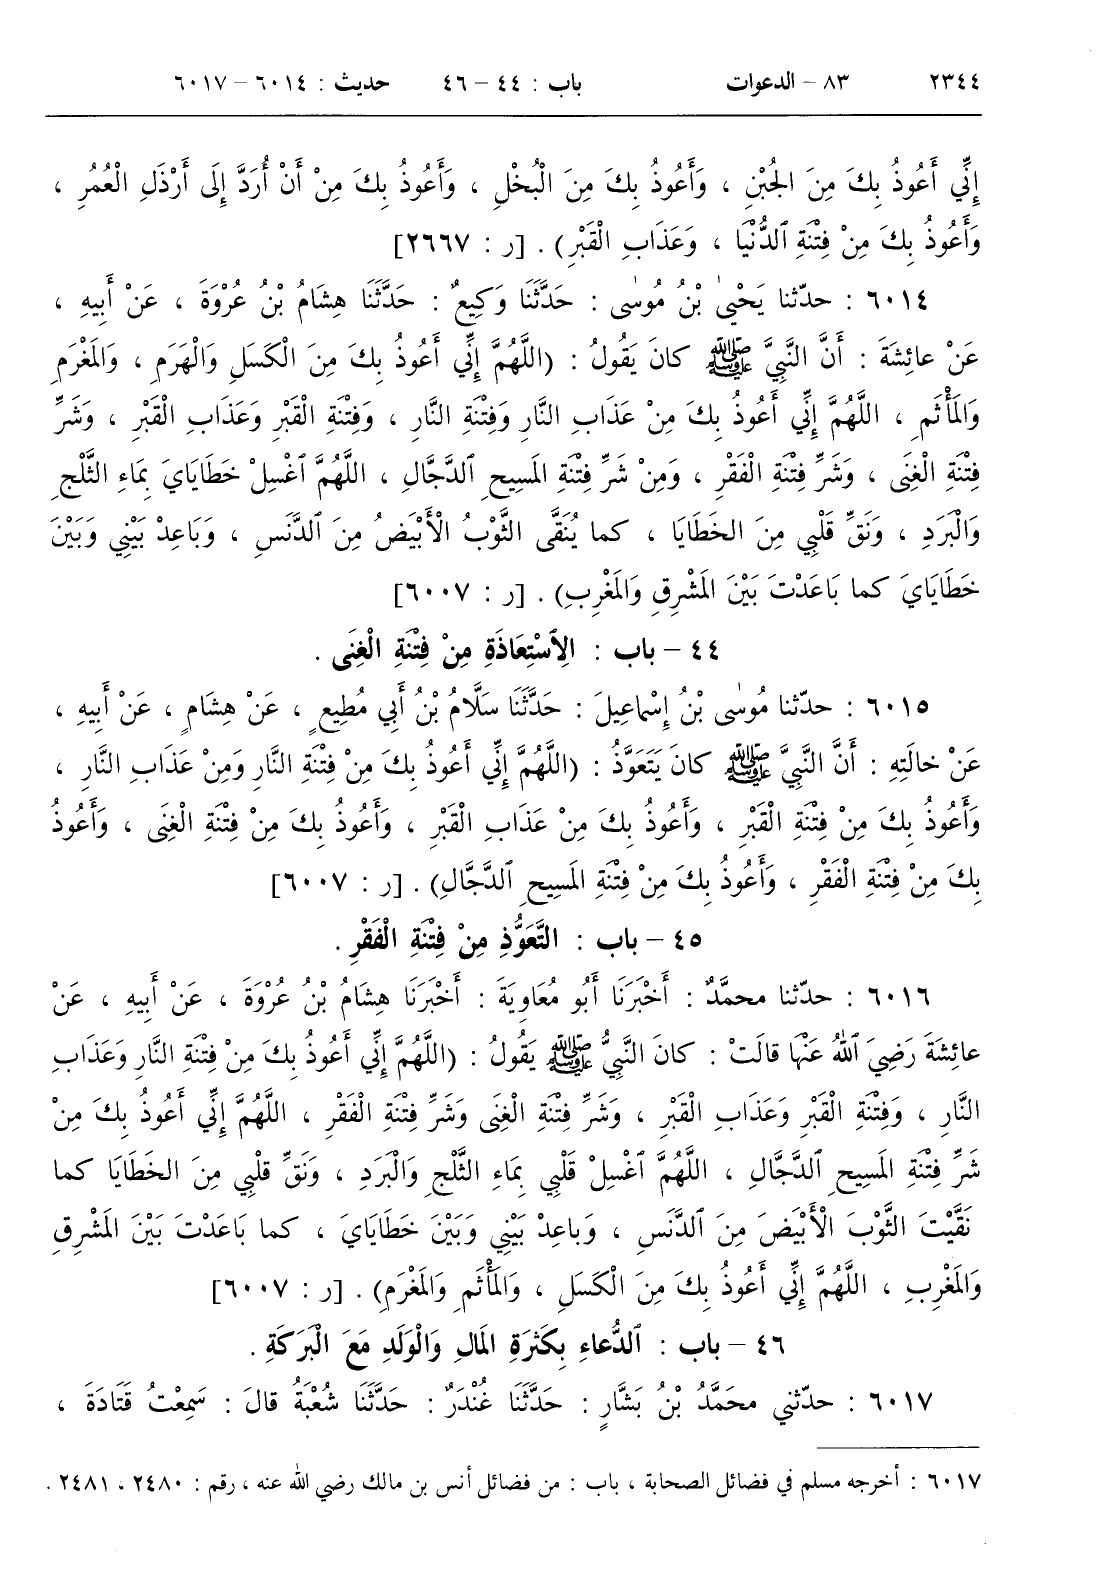 ٢٣٤٤ ٨٣ – الدعوات باب : ٤٤ – ٤٦ حديث : ٦٠١٤ – ٦٠١٧
إِنِّي أَعُوذُ بِكَ مِنَ الجُبْنِ ، وَأَعُوذُ بِكَ مِنَ الْبُخْلِ ، وَأَعُوذُ بِكَ مِنْ أَنْ أُرَدَّ إِلَى أَرْذَلِ الْعُمُرِ ،
وَأَعُوذُ بِكَ مِنْ فِتْنَةِ ٱلدُّنْيَا ، وَعَذَابِ الْقَبْرِ) . [ر : ٢٦٦٧]
٦٠١٤ : حدّثنا يَحْيىٰ بْنُ مُوسٰى : حَدَّثَنَا وَكِيعٌ : حَدَّثَنَا هِشَامُ بْنُ عُرْوَةَ ، عَنْ أَبِيهِ ،
عَنْ عائِشَةَ : أَنَّ النَّبِيَّ ﷺ كانَ يَقُولُ : (اللَّهُمَّ إِنِّي أَعُوذُ بِكَ مِنَ الْكَسَلِ وَالْهَرَمِ ، وَالمَغْرَمِ
وَالمَأْثَمِ ، اللَّهُمَّ إِنِّي أَعُوذُ بِكَ مِنْ عَذَابِ النَّارِ وَفِتْنَةِ النَّارِ ، وَفِتْنَةِ الْقَبْرِ وَعَذَابِ الْقَبْرِ ، وَشَرِّ
فِتْنَةِ الْغِنَى ، وَشَرِّ فِتْنَةِ الْفَقْرِ ، وَمِنْ شَرِّ فِتْنَةِ المَسِيحِ ٱلدَّجَّالِ ، اللَّهُمَّ ٱغْسِلْ خَطَايَايَ بِمَاءِ الثَّلْجِ
وَالْبَرَدِ ، وَنَقِّ قَلْبِي مِنَ الخَطَايَا ، كما يُنَقَّى الثَّوْبُ الْأَبْيَضُ مِنَ ٱلدَّنَسِ ، وَبَاعِدْ بَيْنِي وَبَيْنَ
خَطَايَايَ كما بَاعَدْتَ بَيْنَ المَشْرِقِ وَالمَغْرِبِ) . [ر : ٦٠٠٧]
٤٤ – باب : الِٱسْتِعَاذَةِ مِنْ فِتْنَةِ الْغِنَى .
٦٠١٥ : حدّثنا مُوسٰى بْنُ إِسْماعِيلَ : حَدَّثَنَا سَلَّامُ بْنُ أَبِي مُطِيعٍ ، عَنْ هِشَامٍ ، عَنْ أَبِيهِ ،
عَنْ خالَتِهِ : أَنَّ النَّبِيَّ ﷺ كانَ يَتَعَوَّذُ : (اللَّهُمَّ إِنِّي أَعُوذُ بِكَ مِنْ فِتْنَةِ النَّارِ وَمِنْ عَذَابِ النَّارِ ،
وَأَعُوذُ بِكَ مِنْ فِتْنَةِ الْقَبْرِ ، وَأَعُوذُ بِكَ مِنْ عَذَابِ الْقَبْرِ ، وَأَعُوذُ بِكَ مِنْ فِتْنَةِ الْغِنَى ، وَأَعُوذُ
بِكَ مِنْ فِتْنَةِ الْفَقْرِ ، وَأَعُوذُ بِكَ مِنْ فِتْنَةِ المَسِيحِ ٱلدَّجَّالِ) . [ر : ٦٠٠٧]
٤٥ – باب : التَّعَوُّذِ مِنْ فِتْنَةِ الْفَقْرِ .
٦٠١٦ : حدّثنا محمَّدٌ : أَخْبَرَنَا أَبُو مُعَاوِيَةَ : أَخْبَرَنَا هِشَامُ بْنُ عُرْوَةَ ، عَنْ أَبِيهِ ، عَنْ
عائِشَةَ رَضِيَ ٱللهُ عَنْهَا قالَتْ : كانَ النَّبِيُّ ﷺ يَقُولُ : (اللَّهُمَّ إِنِّي أَعُوذُ بِكَ مِنْ فِتْنَةِ النَّارِ وَعَذَابِ
النَّارِ ، وَفِتْنَةِ الْقَبْرِ وَعَذَابِ الْقَبْرِ ، وَشَرِّ فِتْنَةِ الْغِنَى وَشَرِّ فِتْنَةِ الْفَقْرِ ، اللَّهُمَّ إِنِّي أَعُوذُ بِكَ مِنْ
شَرِّ فِتْنَةِ المَسِيحِ ٱلدَّجَّالِ ، اللَّهُمَّ ٱغْسِلْ قَلْبِي بِمَاءِ الثَّلْجِ وَالْبَرَدِ ، وَنَقِّ قلْبِي مِنَ الخَطَايَا كما
نَقَّيْتَ الثَّوْبَ الْأَبْيَضَ مِنَ ٱلدَّنَسِ ، وَباعِدْ بَيْنِي وَبَيْنَ خَطَايَايَ ، كما بَاعَدْتَ بَيْنَ المَشْرِقِ
وَالمَغْرِبِ ، اللَّهُمَّ إِنِّي أَعُوذُ بِكَ مِنَ الْكَسَلِ ، وَالمَأْثَمِ وَالمَغْرَمِ) . [ر : ٦٠٠٧]
٤٦ – باب : ٱلدُّعاءِ بِكَثرَةِ المَالِ وَالْوَلَدِ مَعَ الْبَرَكَةِ .
٦٠١٧ : حدّثني محمَّدُ بْنُ بَشَّارٍ : حَدَّثَنَا غُنْدَرٌ : حَدَّثَنَا شُعْبَةُ قالَ : سَمِعْتُ قَتَادَةَ ،
٦٠١٧ : أخرجه مسلم في فضائل الصحابة ، باب : من فضائل أنس بن مالك رضي الله عنه ، رقم : ٢٤٨٠ ، ٢٤٨١ .